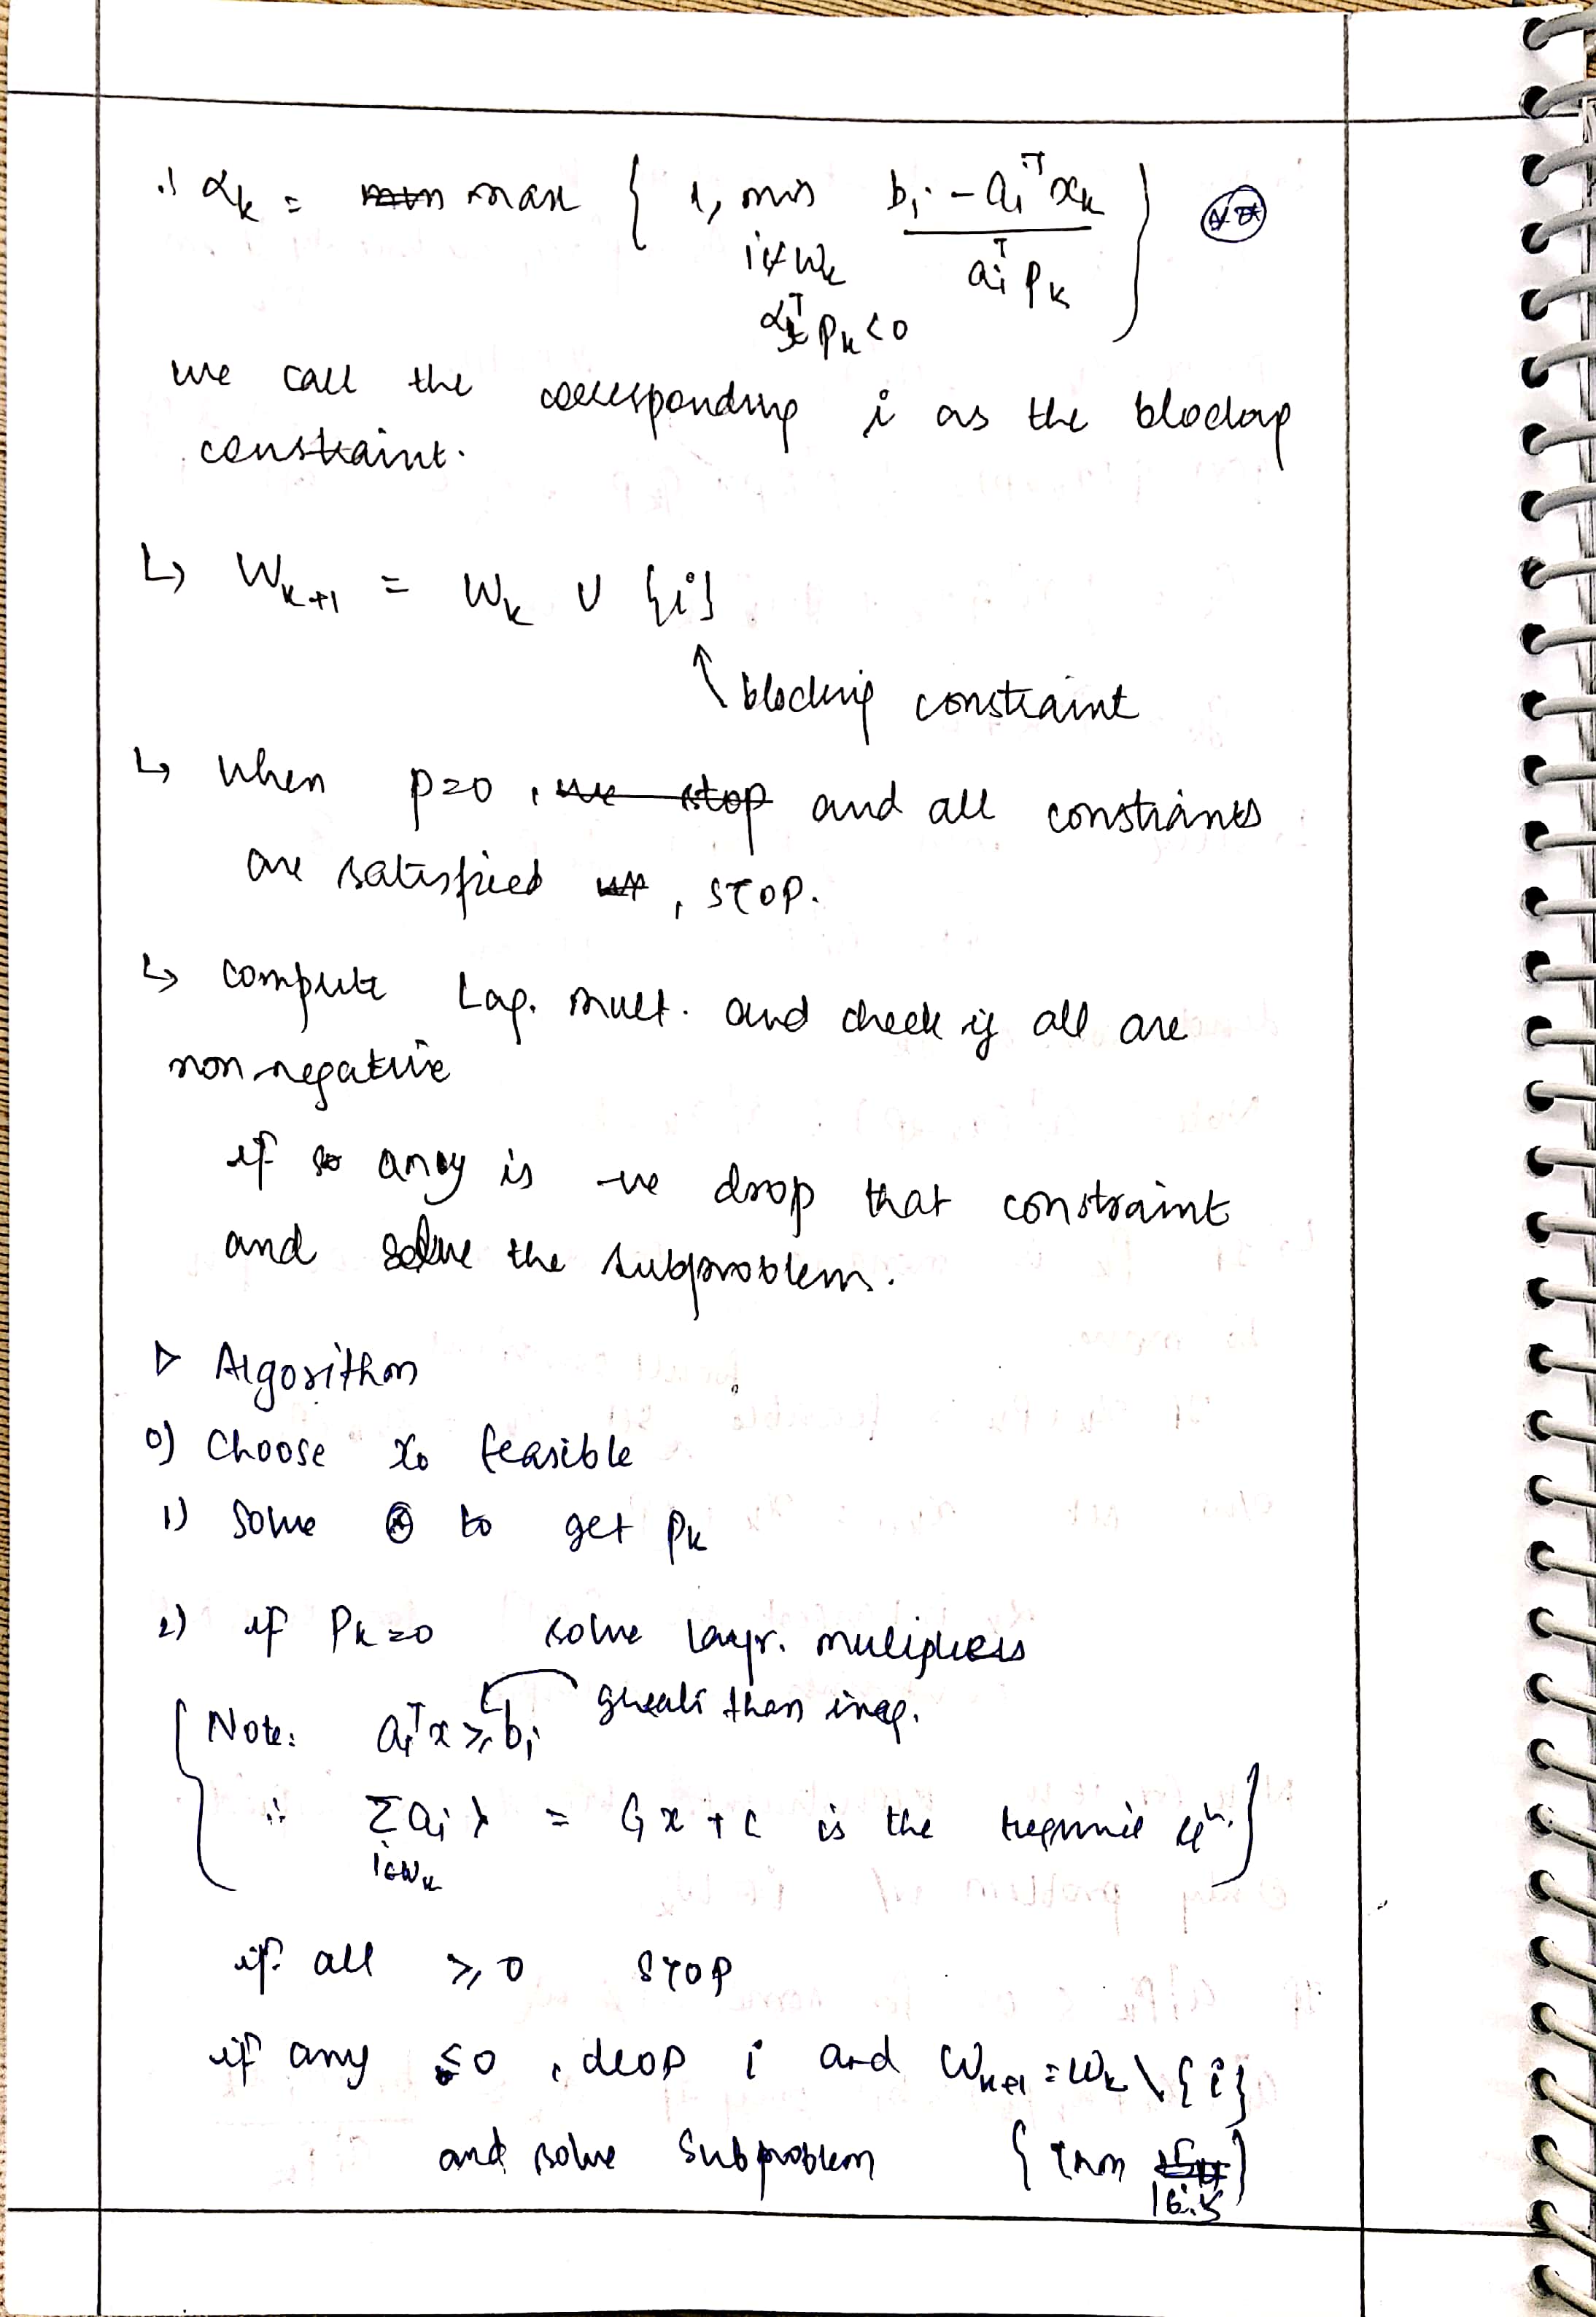 ∴ αₖ = max { 1, min (bᵢ - aᵢᵀxₖ) / (aᵢᵀpₖ) } (**)
i∉Wₖ
aᵢᵀpₖ<0
we call the corresponding i as the blocking
constraint.
↳ Wₖ₊₁ = Wₖ ∪ {i}
↑ blocking constraint
↳ When p=0, and all constriants
are satisfied , STOP.
↳ compute Lag. mult. and check if all are
non negative
if any is -ve drop that constraint
and solve the subproblem.
▷ Algorithm
0) Choose x₀ feasible
1) Solve ⊛ to get pₖ
2) if Pₖ=0 solve layr. mulipliers
{ Note: aᵢᵀx ≥ bᵢ greater than ineq.
∴ Σ aᵢ λ = Gx + c is the eqⁿ. }
i∈Wₖ
if all ≥ 0 STOP
if any ≤0, drop i and Wₖ₊₁ = Wₖ \ {i}
and solve Subproblem { Thm 16.5 }